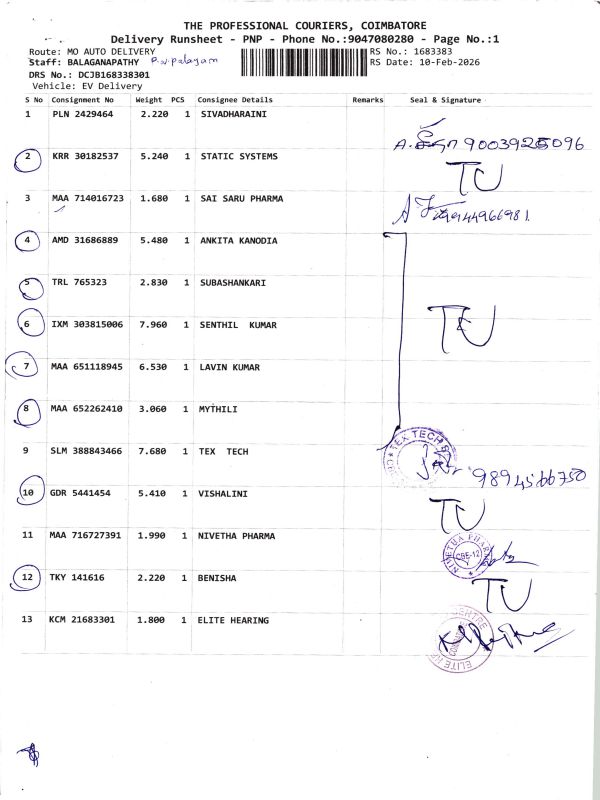 THE PROFESSIONAL COURIERS, COIMBATORE
Delivery Runsheet - PNP - Phone No.:9047080280 - Page No.:1
Route: MO AUTO DELIVERY
RS No.: 1683383
Staff: BALAGANAPATHY
RS Date: 10-Feb-2026
DRS No.: DCJB168338301
Vehicle: EV Delivery
S No Consignment No Weight PCS Consignee Details Remarks Seal & Signature
1 PLN 2429464 2.220 1 SIVADHARAINI
2 KRR 30182537 5.240 1 STATIC SYSTEMS TU
3 MAA 714016723 1.680 1 SAI SARU PHARMA
4 AMD 31686889 5.480 1 ANKITA KANODIA
5 TRL 765323 2.830 1 SUBASHANKARI
6 IXM 303815006 7.960 1 SENTHIL KUMAR
7 MAA 651118945 6.530 1 LAVIN KUMAR
8 MAA 652262410 3.060 1 MYTHILI
9 SLM 388843466 7.680 1 TEX TECH TEX TECH
10 GDR 5441454 5.410 1 VISHALINI TU
11 MAA 716727391 1.990 1 NIVETHA PHARMA CBE-12
12 TKY 141616 2.220 1 BENISHA TU
13 KCM 21683301 1.800 1 ELITE HEARING